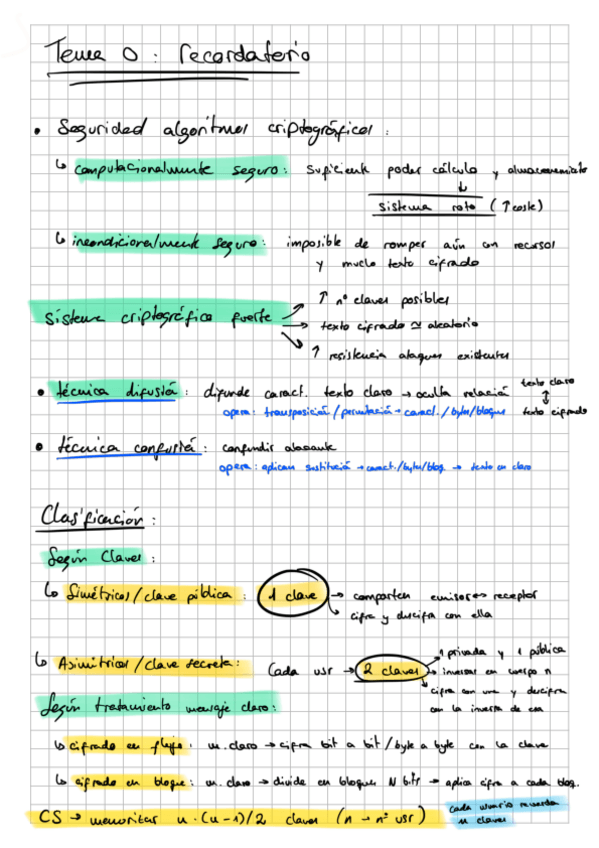 Tema 0 : recordatorio
• Seguridad algoritmos criptográficos :
↳ computacionalmente seguro : suficiente poder cálculo y almacenamiento
↓
sistema roto (↑ coste)
↳ incondicionalmente seguro : imposible de romper aún con recursos
y mucho texto cifrado
sistema criptográfico fuerte → ↑ nº claves posibles
→ texto cifrado ≃ aleatorio
→ ↑ resistencia ataques existentes
• técnica difusión : difunde caract. texto claro → oculta relación texto claro ↕ texto cifrado
opera : transposición / permutación → caract. / bytes/bloques
• técnica confusión : confundir atacante
opera : aplican sustitución → caract./byte/bloq. → texto en claro
Clasificación :
Según Claves :
↳ Simétricos / clave pública : 1 clave → comparten emisor ↔ receptor
→ cifra y descifra con ella
↳ Asimétricos / clave secreta : Cada usr → 2 claves → 1 privada y 1 pública
→ inversas en cuerpo n
→ cifra con una y descifra
con la inversa de esa
Según tratamiento mensaje claro :
↳ cifrado en flujo : m. claro → cifra bit a bit / byte a byte con la clave
↳ cifrado en bloque : m. claro → divide en bloques N bits → aplica cifra a cada bloq.
CS → memorizar n · (n-1)/2 claves (n → nº usr) cada usuario recuerda
n claves